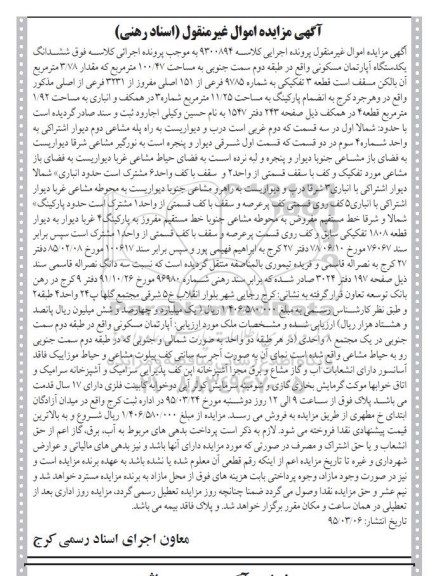 آگهی مزایده اموال غیرمنقول (اسناد رهنی)
آگهی مزایده اموال غیرمنقول پرونده اجرایی کلاسه ۹۳۰۰۸۹۴ به موجب پرونده اجرائی کلاسه فوق ششدانگ
یکدستگاه آپارتمان مسکونی واقع در طبقه دوم سمت جنوبی به مساحت ۱۰۰/۴۷ مترمربع که مقدار ۳/۷۸ مترمربع
آن بالکن مسقف است قطعه ۳ تفکیکی به شماره ۹۷۸۵ فرعی از ۱۵۱ اصلی مفروز از ۳۲۳۱ فرعی از اصلی مذکور
واقع در وهرجرد کرج به انضمام پارکینگ به مساحت ۱۱/۲۵ مترمربع شماره ۳ در همکف و انباری به مساحت ۱/۹۲
مترمربع قطعه ۴ در همکف ذیل صفحه ۲۴۳ دفتر ۱۵۴۷ به نام حسین وکیلی اجارود ثبت و سند صادر گردیده است
با حدود: شمالا اول در سه قسمت که دوم غربی است درب و دیواریست به راه پله مشاعی دوم دیوار اشتراکی به
واحد شماره ۴ سوم در دو قسمت که قسمت اول شرقی دیوار و پنجره است به نورگیر مشاعی شرقا دیواریست
به فضای باز مشاعی جنوبا دیوار و پنجره و لبه نرده است به فضای حیاط مشاعی غربا دیواریست به فضای باز
مشاعی مورد تفکیک و کف با سقف قسمتی از واحد ۲ و سقف با کف واحد ۶ مشترک است حدود انباری» شمالا
دیوار اشتراکی با انباری ۳ شرقا درب و دیواریست به راهرو مشاعی جنوبا دیواریست به محوطه مشاعی غربا دیوار
اشتراکی با انباری ۵ کف روی قسمتی کف پرعرصه و سقف با کف قسمتی از واحد ۱ مشترک است حدود پارکینگ»
شمالا و شرقا خط مستقیم مفروض به محوطه مشاعی جنوبا خط مستقیم مفروز به پارکینگ ۴ غربا دیوار به دیوار
قطعه ۱۸۰۸ تفکیکی سابق و کف روی قسمت پرعرصه و سقف با کف قسمتی از واحد ۱ مشترک است سپس برابر
سند ۷۶۰۶۷ مورخ ۷۸/۰۶/۱۰ دفتر ۲۷ کرج به ابراهیم فهیمی پور و سپس برابر سند ۱۰۰۶۱۷ مورخ ۸۵/۰۲/۰۸ دفتر
۲۷ کرج به نصراله قاسمی و فریده تیموری بالمناصفه منتقل گردیده است که نسبت سه دانگ نصراله قاسمی سند
ذیل صفحه ۱۹۷ دفتر ۳۰۲۴ صادر شده که برابر سند رهنی شماره ۹۶۹۸۰ مورخ ۹۱/۱۰/۲۶ دفتر ۹ کرج در رهن
بانک توسعه تعاون قرار گرفته به نشانی: کرج رجایی شهر بلوار انقلاب خ ۵ شرقی مجتمع گلها پ ۲۴ واحد ۴ طبقه ۲
و طبق نظر کارشناس رسمی به مبلغ ۱/۴۰۶/۵۸۰/۰۰۰ ریال (یک میلیارد و چهارصد و شش میلیون ریال پانصد
و هشتاد هزار ریال) ارزیابی شده و مشخصات ملک مورد ارزیابی: آپارتمان مسکونی واقع در طبقه دوم سمت
جنوبی در یک مجتمع ۸ واحدی (در هر طبقه دو واحد به صورت شمالی و جنوبی که در طبقه دوم سمت جنوبی
رو به حیاط مشاعی واقع شده است نمای آن به صورت آجر سه سانتی کف پیلوت مشاعی و حیاط موزاییک فاقد
آسانسور دارای انشعابات آب و گاز مشاع و برق مجزا آشپزخانه این کف پذیرایی سرامیک و آشپزخانه سرامیک و
اتاق خوابها موکت گرمایش بخاری گازی و شومینه سرمایش کولر آبی دوجداره کابینت فلزی دارای ۱۷ سال قدمت
می باشند پلاک فوق از ساعت ۹ الی ۱۲ روز دوشنبه مورخ ۹۵/۰۳/۲۴ در اداره ثبت کرج واقع در میدان آزادگان
ابتدای خ مطهری از طریق مزایده به فروش می رسد. مزایده از مبلغ ۱/۴۰۶/۵۸۰/۰۰۰ ریال شروع و به بالاترین
قیمت پیشنهادی نقدا فروخته می شود. لازم به ذکر است پرداخت بدهی های مربوط به آب، برق، گاز اعم از حق
انشعاب و یا حق اشتراک و مصرف در صورتی که مورد مزایده دارای آنها باشد و نیز بدهی های مالیاتی و عوارض
شهرداری و غیره تا تاریخ مزایده اعم از اینکه رقم قطعی آن معلوم شده یا نشده باشد به عهده برنده مزایده است و
نیز در صورت وجود مازاد، وجوه پرداختی بابت هزینه های فوق از محل مازاد به برنده مزایده مسترد خواهد شد و
نیم عشر و حق مزایده نقدا وصول می گردد ضمنا چنانچه روز مزایده تعطیل رسمی گردد، مزایده روز اداری بعد از
تعطیلی در همان ساعت و مکان مقرر برگزار خواهد شد. و پلاک فاقد بیمه می باشد.
تاریخ انتشار: ۹۵/۰۳/۰۶
معاون اجرای اسناد رسمی کرج